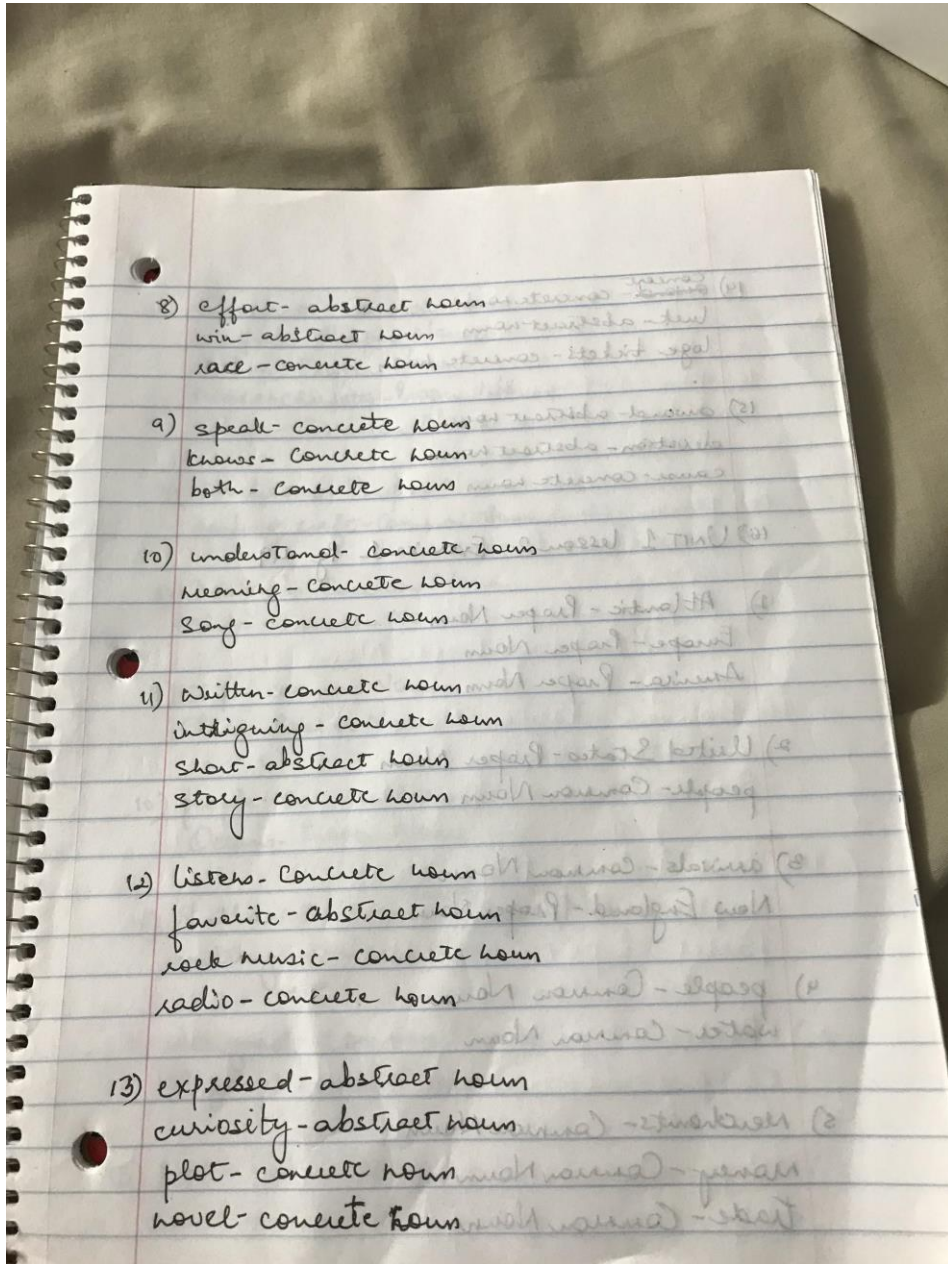 8) effort - abstract noun
win - abstract noun
race - concrete noun
9) speak - concrete noun
knows - concrete noun
both - concrete noun
10) understand - concrete noun
meaning - concrete noun
song - concrete noun
11) written - concrete noun
intriguing - concrete noun
short - abstract noun
story - concrete noun
12) listens - concrete noun
favorite - abstract noun
rock music - concrete noun
radio - concrete noun
13) expressed - abstract noun
curiosity - abstract noun
plot - concrete noun
novel - concrete noun